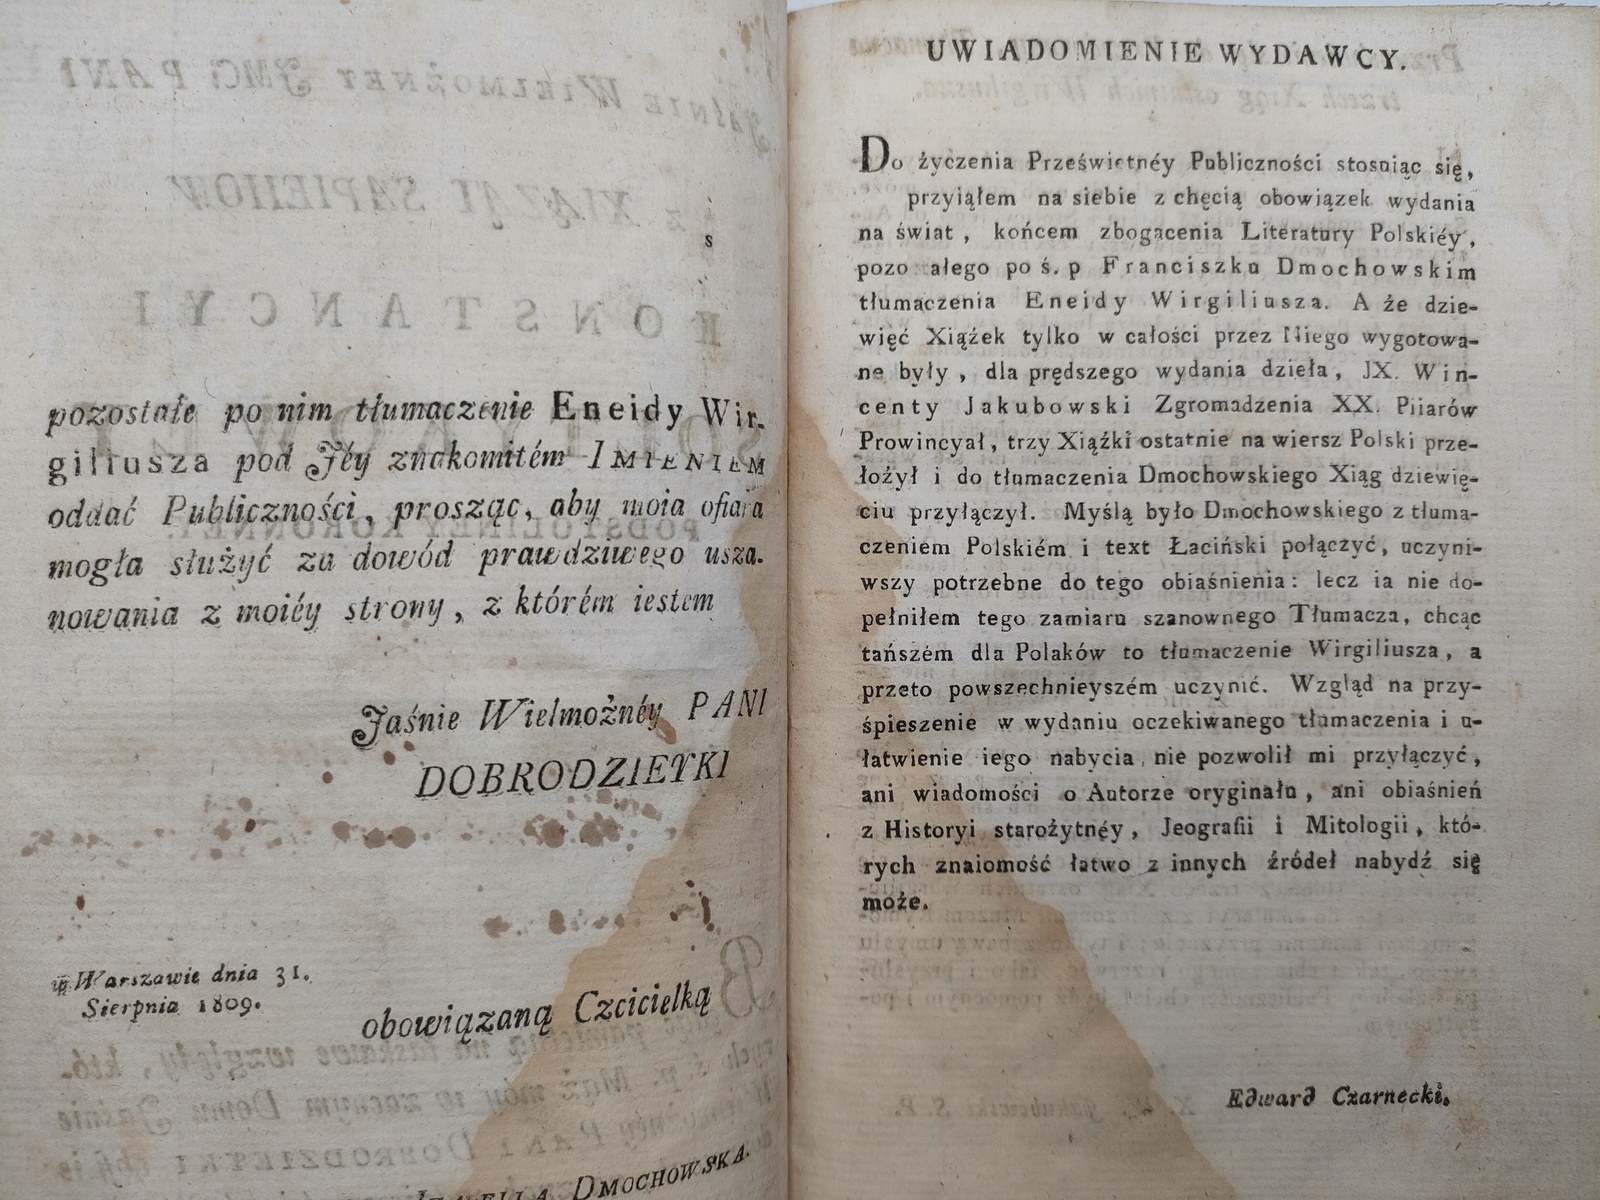 pozostałe po nim tłumaczenie Eneidy Wir.
giliusza pod Jéy znakomitém IMIENIEM
oddać Publiczności, prosząc, aby moia ofiara
mogła służyć za dowód prawdziwego usza.
nowania z moiéy strony, z którém iestem
Jaśnie Wielmożnéy PANI
DOBRODZIEYKI
w Warszawie dnia 31.
Sierpnia 1809.
obowiązaną Czcicielką
IZABELLA DMOCHOWSKA.
UWIADOMIENIE WYDAWCY.
Do życzenia Prześwietnéy Publiczności stosuiąc się,
przyiąłem na siebie z chęcią obowiązek wydania
na świat, końcem zbogacenia Literatury Polskiéy,
pozo ałego po ś. p Franciszku Dmochowskim
tłumaczenia Eneidy Wirgiliusza. A że dzie-
więć Xiążek tylko w całości przez Niego wygotowa-
ne były, dla prędszego wydania dzieła, JX. Win-
centy Jakubowski Zgromadzenia XX. Piiarów
Prowincyał, trzy Xiążki ostatnie na wiersz Polski prze-
łożył i do tłumaczenia Dmochowskiego Xiąg dziewię-
ciu przyłączył. Myślą było Dmochowskiego z tłuma-
czeniem Polskiém i text Łaciński połączyć, uczyni-
wszy potrzebne do tego obiaśnienia: lecz ia nie do-
pełniłem tego zamiaru szanownego Tłumacza, chcąc
tańszém dla Polaków to tłumaczenie Wirgiliusza, a
przeto powszechnieyszém uczynić. Wzgląd na przy-
śpieszenie w wydaniu oczekiwanego tłumaczenia i u-
łatwienie iego nabycia, nie pozwolił mi przyłączyć,
ani wiadomości o Autorze oryginału, ani obiaśnień
z Historyi starożytnéy, Jeografii i Mitologii, któ-
rych znaiomość łatwo z innych źródeł nabydź się
może.
Edward Czarnecki.